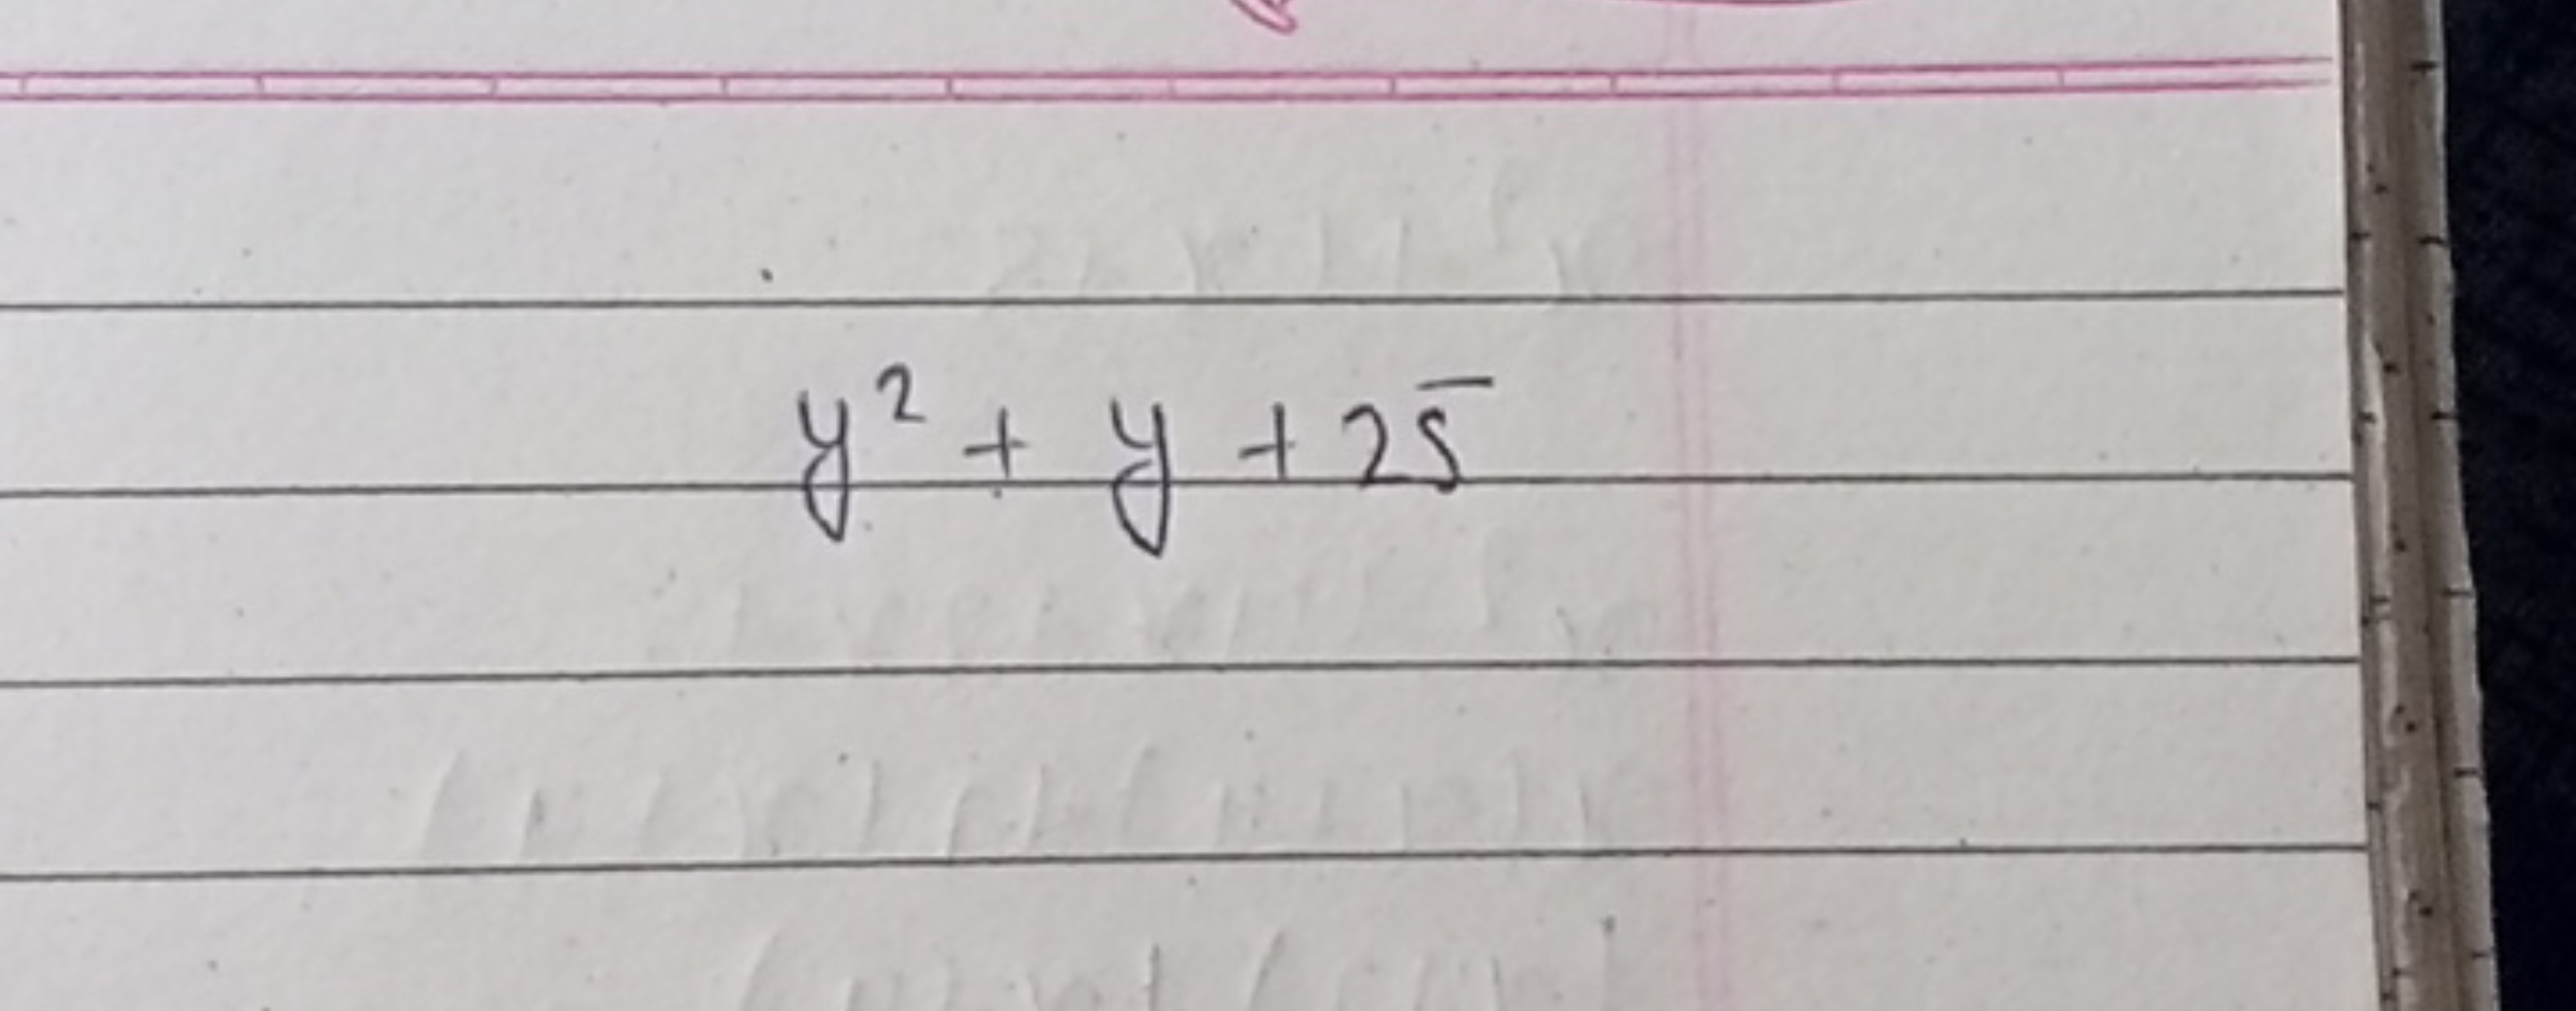 y² + y + 25